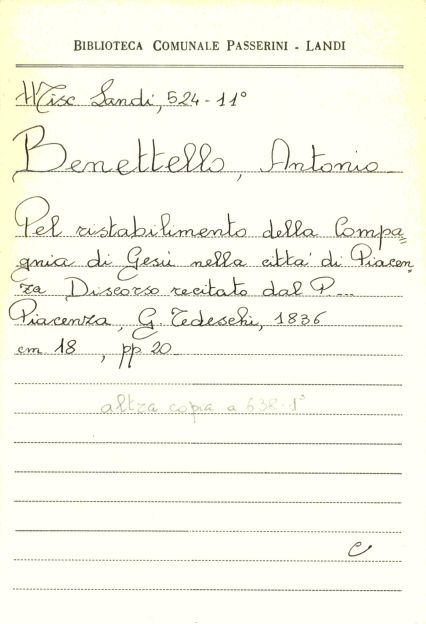 BIBLIOTECA COMUNALE PASSERINI - LANDI
Misc Landi, 524-11°
Benettello, Antonio
Pel ristabilimento della Compa=
gnia di Gesù nella città di Piacen=
za Discorso recitato dal P....
Piacenza, G. Tedeschi, 1836
cm 18, pp 20
altra copia a 638-1°
C